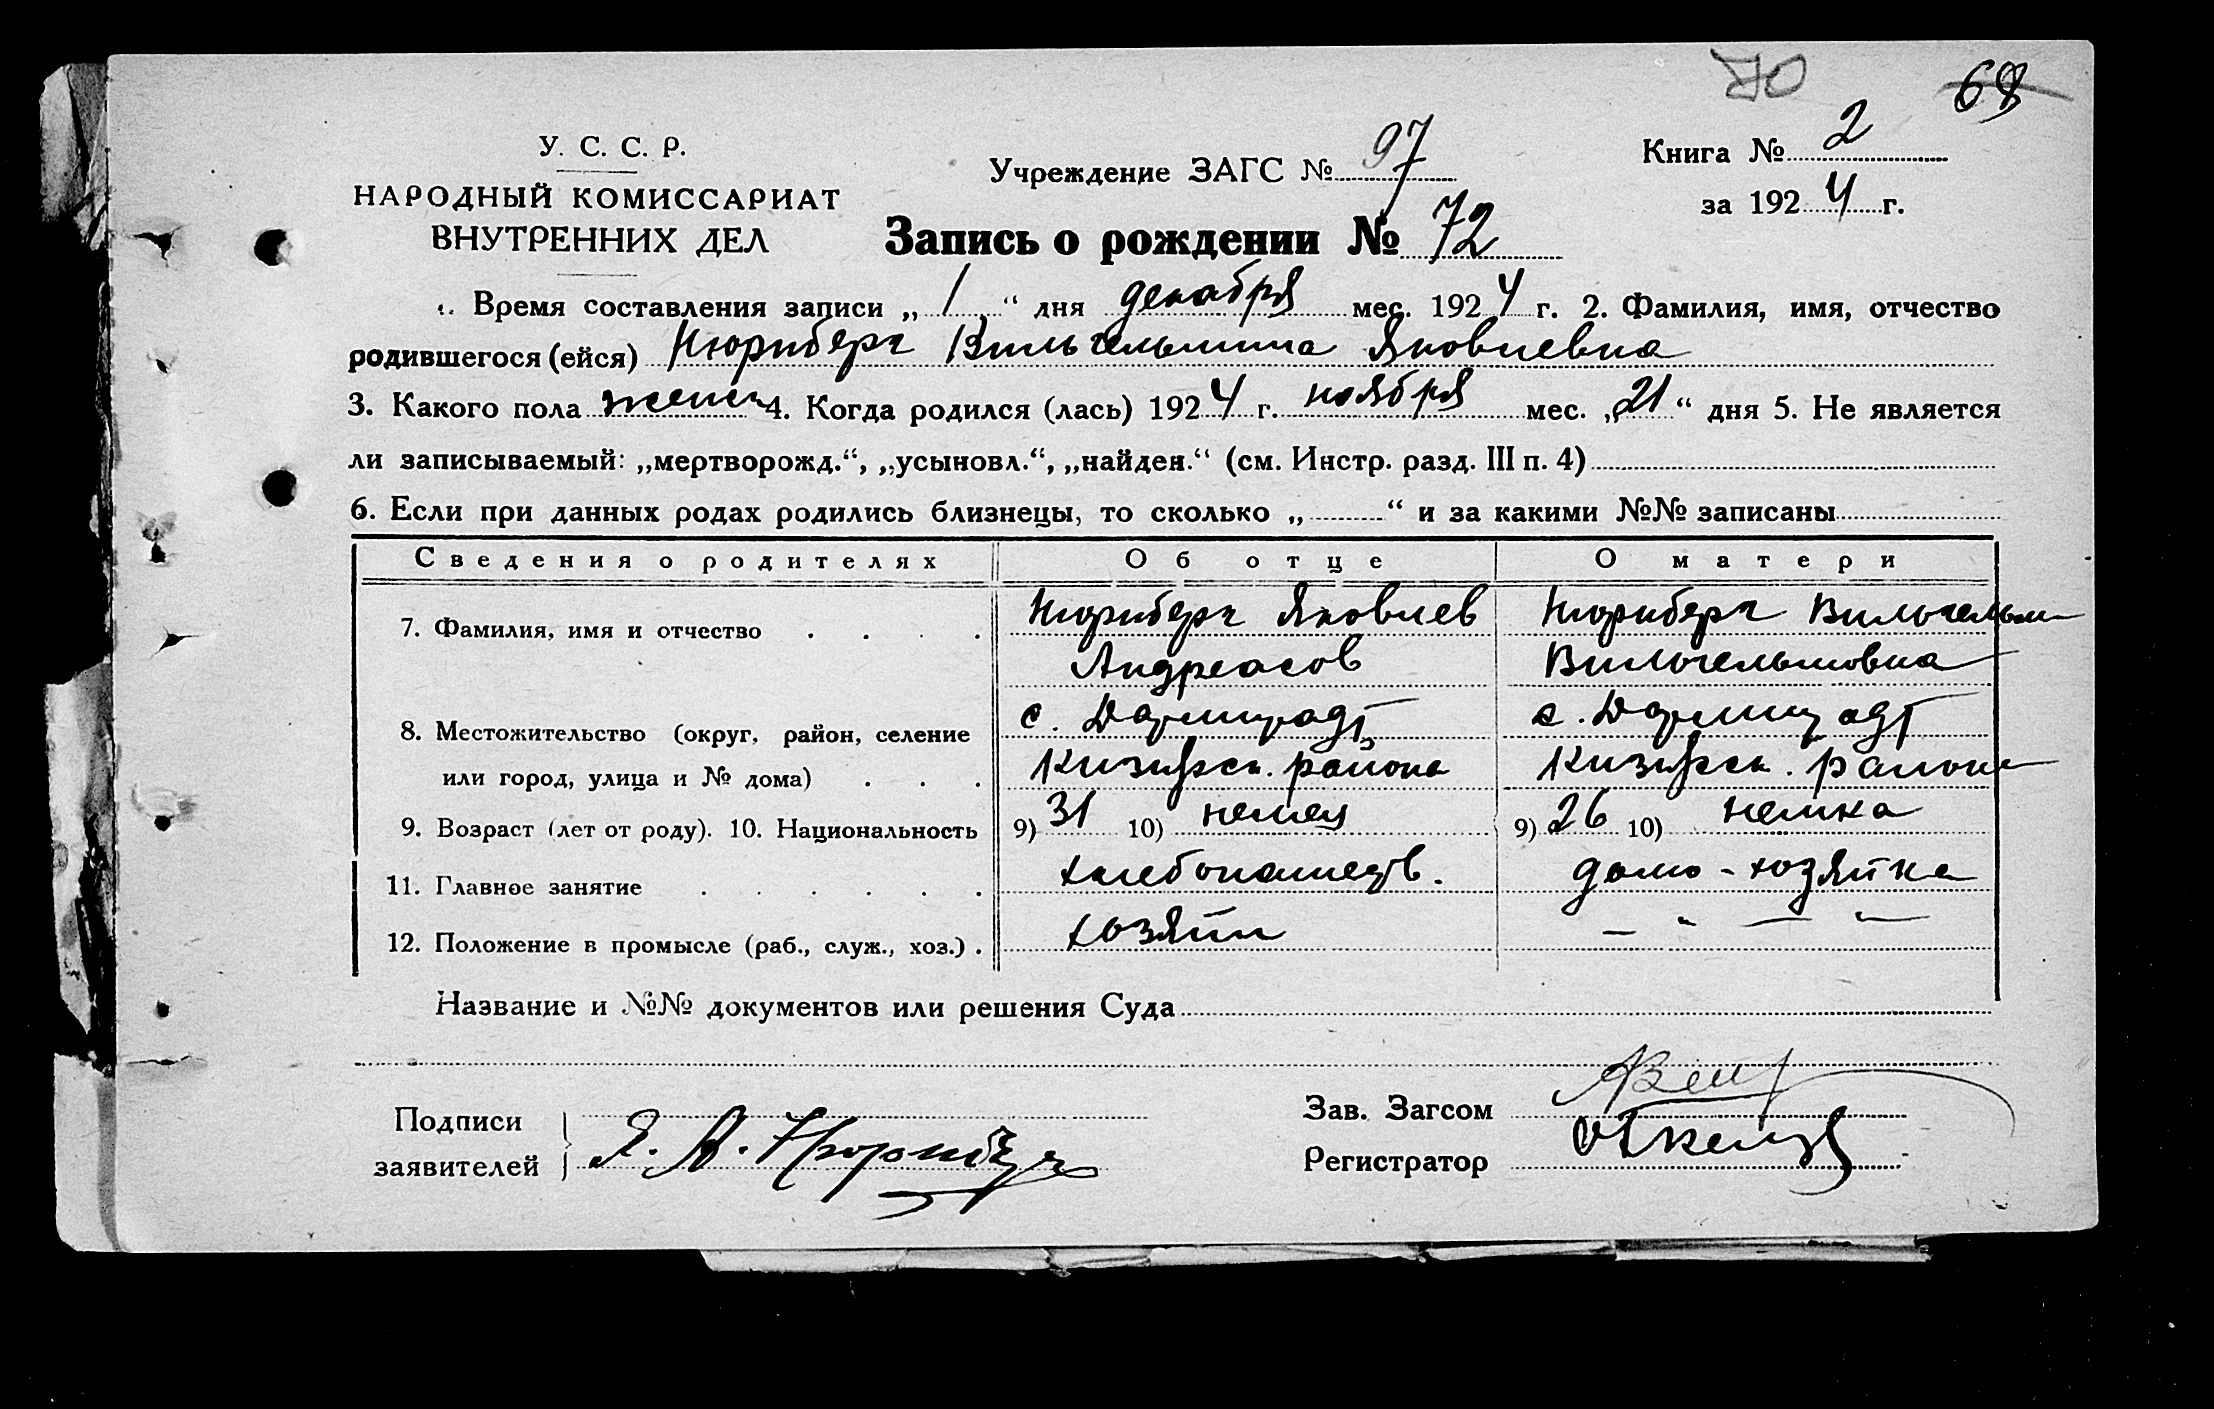 70 68
У. С. С. Р.
НАРОДНЫЙ КОМИССАРИАТ
ВНУТРЕННИХ ДЕЛ
Учреждение ЗАГС № 97
Книга № 2
за 1924 г.
Запись о рождении № 72
1. Время составления записи „1“ дня декабря мес. 1924 г. 2. Фамилия, имя, отчество
родившегося (ейся) Нюрнберг Вильгельмина Яковлевна
3. Какого пола женск 4. Когда родился (лась) 1924 г. ноября мес. „21“ дня 5. Не является
ли записываемый: „мертворожд.“, „усыновл.“, „найден.“ (см. Инстр. разд. III п. 4)
6. Если при данных родах родились близнецы, то сколько „ “ и за какими №№ записаны
Сведения о родителях Об отце О матери
7. Фамилия, имя и отчество Нюрнберг Яковлев Нюрнберг Вильгельм
Андреасов Вильгельмовна
8. Местожительство (округ, район, селение с. Дармштадт с. Дармштадт
или город, улица и № дома) района района
9. Возраст (лет от роду). 10. Национальность 9) 31 10) немец 9) 26 10) немка
11. Главное занятие хлебопашец. домо-хозяйка
12. Положение в промысле (раб., служ., хоз.) хозяин — „ — „ —
Название и №№ документов или решения Суда
Подписи
заявителей Я. А. Нюрнберг
Зав. Загсом
Регистратор